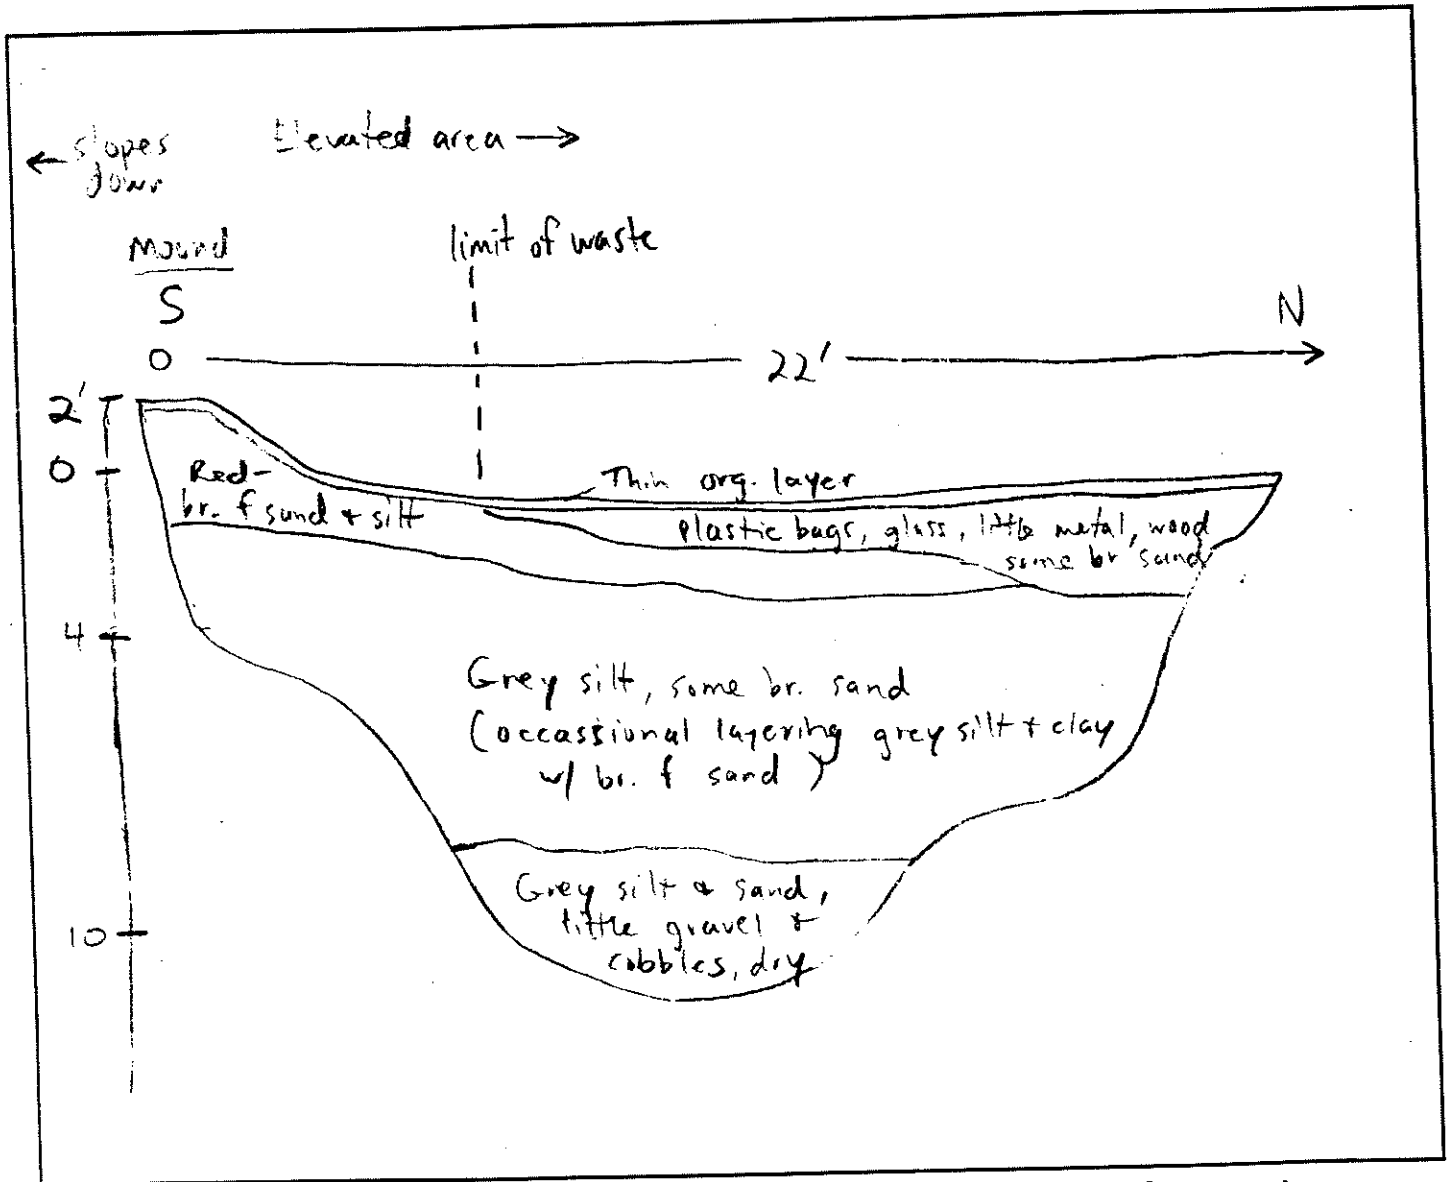 ← slopes
down
Elevated area →
Mound
limit of waste
S
N
0
22'
2'
0
Thin org. layer
Red-
br. f sand + silt
plastic bags, glass, little metal, wood
some br sand
4
Grey silt, some br. sand
(occassional layering grey silt + clay
w/ br. f sand)
Grey silt & sand,
little gravel +
cobbles, dry
10